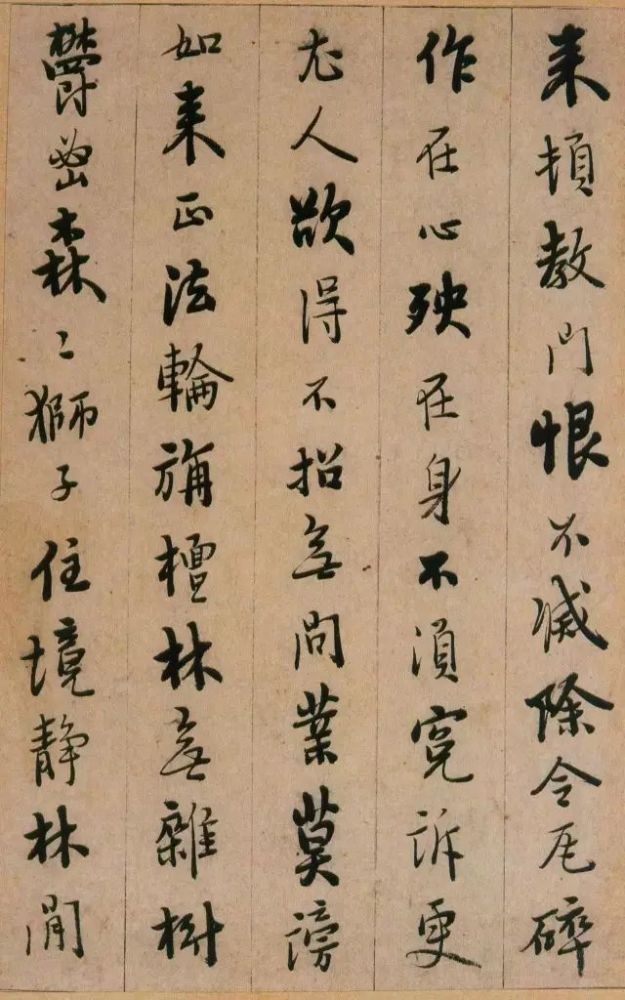 来頓教門恨不滅除令瓦碎
作在心殃在身不須冤訴更
尤人欲得不招無間業莫謗
如来正法輪旃檀林無雜樹
鬱密森〻獅子住境静林間